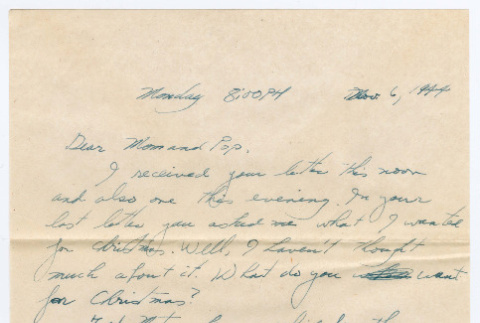 Monday 8:00 PM Nov. 6, 1944
Dear Mom and Pop,
I received your letter this noon
and also one this evening. In your
last letter you asked me what I wanted
for Christmas. Well, I haven't thought
much about it. What do you want
for Christmas?